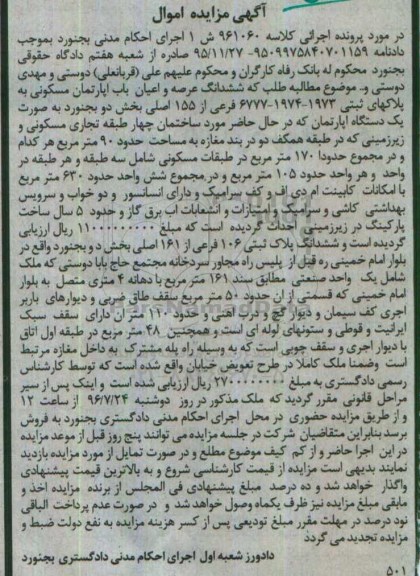 آگهی مزایده اموال
در مورد پرونده اجرائی کلاسه ۹۶۱۰۶۰ ش ۱ اجرای احکام مدنی بجنورد بموجب
دادنامه ۹۵۰۹۹۷۵۸۴۰۷۰۱۱۵۹- ۹۵/۱۱/۲۷ صادره از شعبه هفتم دادگاه حقوقی
بجنورد محکوم له بانک رفاه کارگران و محکوم علیهم علی (قربانعلی) دوستی و مهدی
دوستی و.. موضوع مطالبه طلب که ششدانگ عرصه و اعیان باب اپارتمان مسکونی به
پلاکهای ثبتی ۱۹۷۳-۱۹۷۴-۶۷۷۷ فرعی از ۱۵۵ اصلی بخش دو بجنورد به صورت
یک دستگاه اپارتمان که در حال حاضر مورد ساختمان چهار طبقه تجاری مسکونی و
زیرزمینی که در طبقه همکف دو در بند مغازه به مساحت حدود ۹۰ متر مربع هر کدام
و در مجموع حدودا ۱۷۰ متر مربع در طبقات مسکونی شامل سه طبقه و هر طبقه در
واحد و هر واحد حدود ۱۰۵ متر مربع و در مجموع شش واحد حدود ۶۳۰ متر مربع
با امکانات کابینت ام دی اف و کف سرامیک و دارای آسانسور و دو خواب و سرویس
بهداشتی کاشی و سرامیک و امتیازات و انشعابات اب برق گاز و حدود ۵ سال ساخت
پارکینگ در زیرزمینی احداث گردیده است که مبلغ ۱۱۰۰۰۰۰۰۰۰۰ ریال ارزیابی
گردیده است و ششدانگ پلاک ثبتی ۱۰۶ فرعی از ۱۶۱ اصلی بخش دو بجنورد واقع در
بلوار امام خمینی ره قبل از پلیس راه مجاور سردخانه مجتمع حاج بابا دوستی که ملک
شامل یک واحد صنعتی مطابق سند ۱۶۱ متر مربع با دهانه ۴ متری متصل به بلوار
امام خمینی که قسمتی از ان حدود ۵۰ متر مربع سقف طاق ضربی و دیوارهای باربر
اجری کف سیمان و دیوار گچ و درب اهنی و حدود ۱۱۰ متر ان دارای سقف سبک
ایرانیت و قوطی و ستونهای لوله ای است و همچنین ۴۸ متر مربع در طبقه اول اتاق
با دیوار اجری و سقف چوبی است که به وسیله راه پله مشترک به داخل مغازه مرتبط
است وضمنا ملک کاملا در طرح تعویض خیابان واقع شده است که توسط کارشناس
رسمی دادگستری به مبلغ ۲۷۰۰۰۰۰۰۰۰ ریال ارزیابی شده است و اینک پس از سیر
مراحل قانونی مقرر گردید که ملک مذکور در روز دوشنبه ۹۶/۷/۲۴ از ساعت ۱۲
و از طریق مزایده حضوری در محل اجرای احکام مدنی دادگستری بجنورد به فروش
برسد بنابراین متقاضیان شرکت در جلسه مزایده می توانند پنج روز قبل از موعد مزایده
در این اجرا حاضر و از کم کیف موضوع مطلع و در صورت تمایل از مورد مزایده بازدید
نمایند بدیهی است مزایده از قیمت کارشناسی شروع و به بالاترین قیمت پیشنهادی
واگذار خواهد شد و ده درصد مبلغ پیشنهادی فی المجلس از برنده مزایده اخذ و
مابقی مبلغ مزایده نیز ظرف یکماه وصول خواهد شد و در صورت عدم پرداخت الباقی
نود درصد در مهلت مقرر مبلغ تودیعی پس از کسر هزینه مزایده به نفع دولت ضبط و
مزایده تجدید می گردد
دادورز شعبه اول اجرای احکام مدنی دادگستری بجنورد
۵۰۱